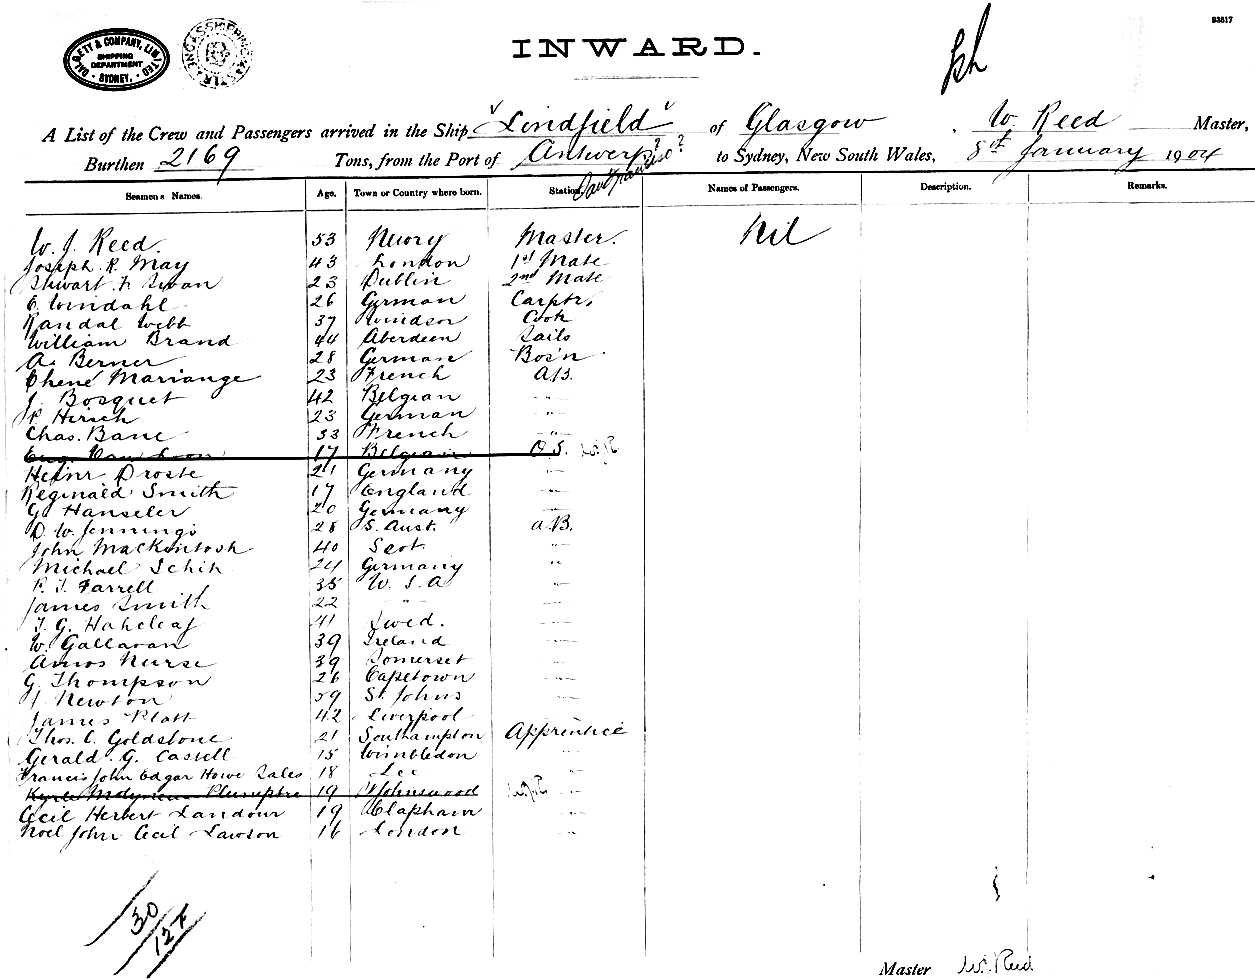 93817
DALGETY & COMPANY, LIMITED
SHIPPING DEPARTMENT
SYDNEY.
INWARD.
A List of the Crew and Passengers arrived in the Ship Lindfield of Glasgow, W. Reed Master,
Burthen 2169 Tons, from the Port of Antwerp to Sydney, New South Wales, 8th January 1904
Seamens Names. Age. Town or Country where born. Station Names of Passengers. Description. Remarks.
W. J. Reed. 53 Newry Master. Nil
Joseph. R. May 43 London 1st Mate
Stewart. F. Swan 23 Dublin 2nd Mate
E. Windahl 26 German Carptr,
Randal Webb 37 Windsor Cook
William Brand 44 Aberdeen Sails
A. Berner 28 German Bos'n
Chene Mariange 23 French A.B.
J. Bosquet 42 Belgian "
P. Hirsch 23 German "
Chas. Bane 33 French "
Eug. Van Loon 17 Belgian O.S.
Heinr Droste 21 Germany "
Reginald Smith 17 England "
G. Hanseler 20 Germany "
D. W. Jennings 28 S. Aust. A.B.
John Mackintosh 40 Scot "
Michael Schik 24 Germany "
P. J. Farrell 35 U. S. A "
James Smith 22 " "
T. G. Hakeleaf 41 Swed. "
W. Gallavan 39 Ireland "
Amos Nurse 39 Somerset "
G. Thompson 26 Capetown "
J. Newton 59 St. Johns "
James Platt 42 Liverpool "
Thos. C. Goldstone 21 Southampton Apprentice
Gerald. G. Castell 15 Wimbledon "
Francis John Edgar Howe Sales 18 Lee "
Kyrle Molyneux Plumptre 19 St Johnswood "
Cecil Herbert Landour 19 Clapham "
Noel John Cecil Lawson 16 London "
30
12 +
Master W. Reed